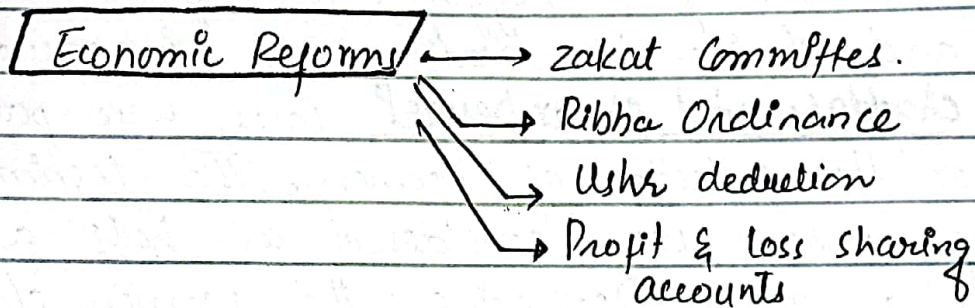 Economic Reforms
zakat Committes.
Ribba Ordinance
Ushr deduction
Profit & loss sharing
accounts